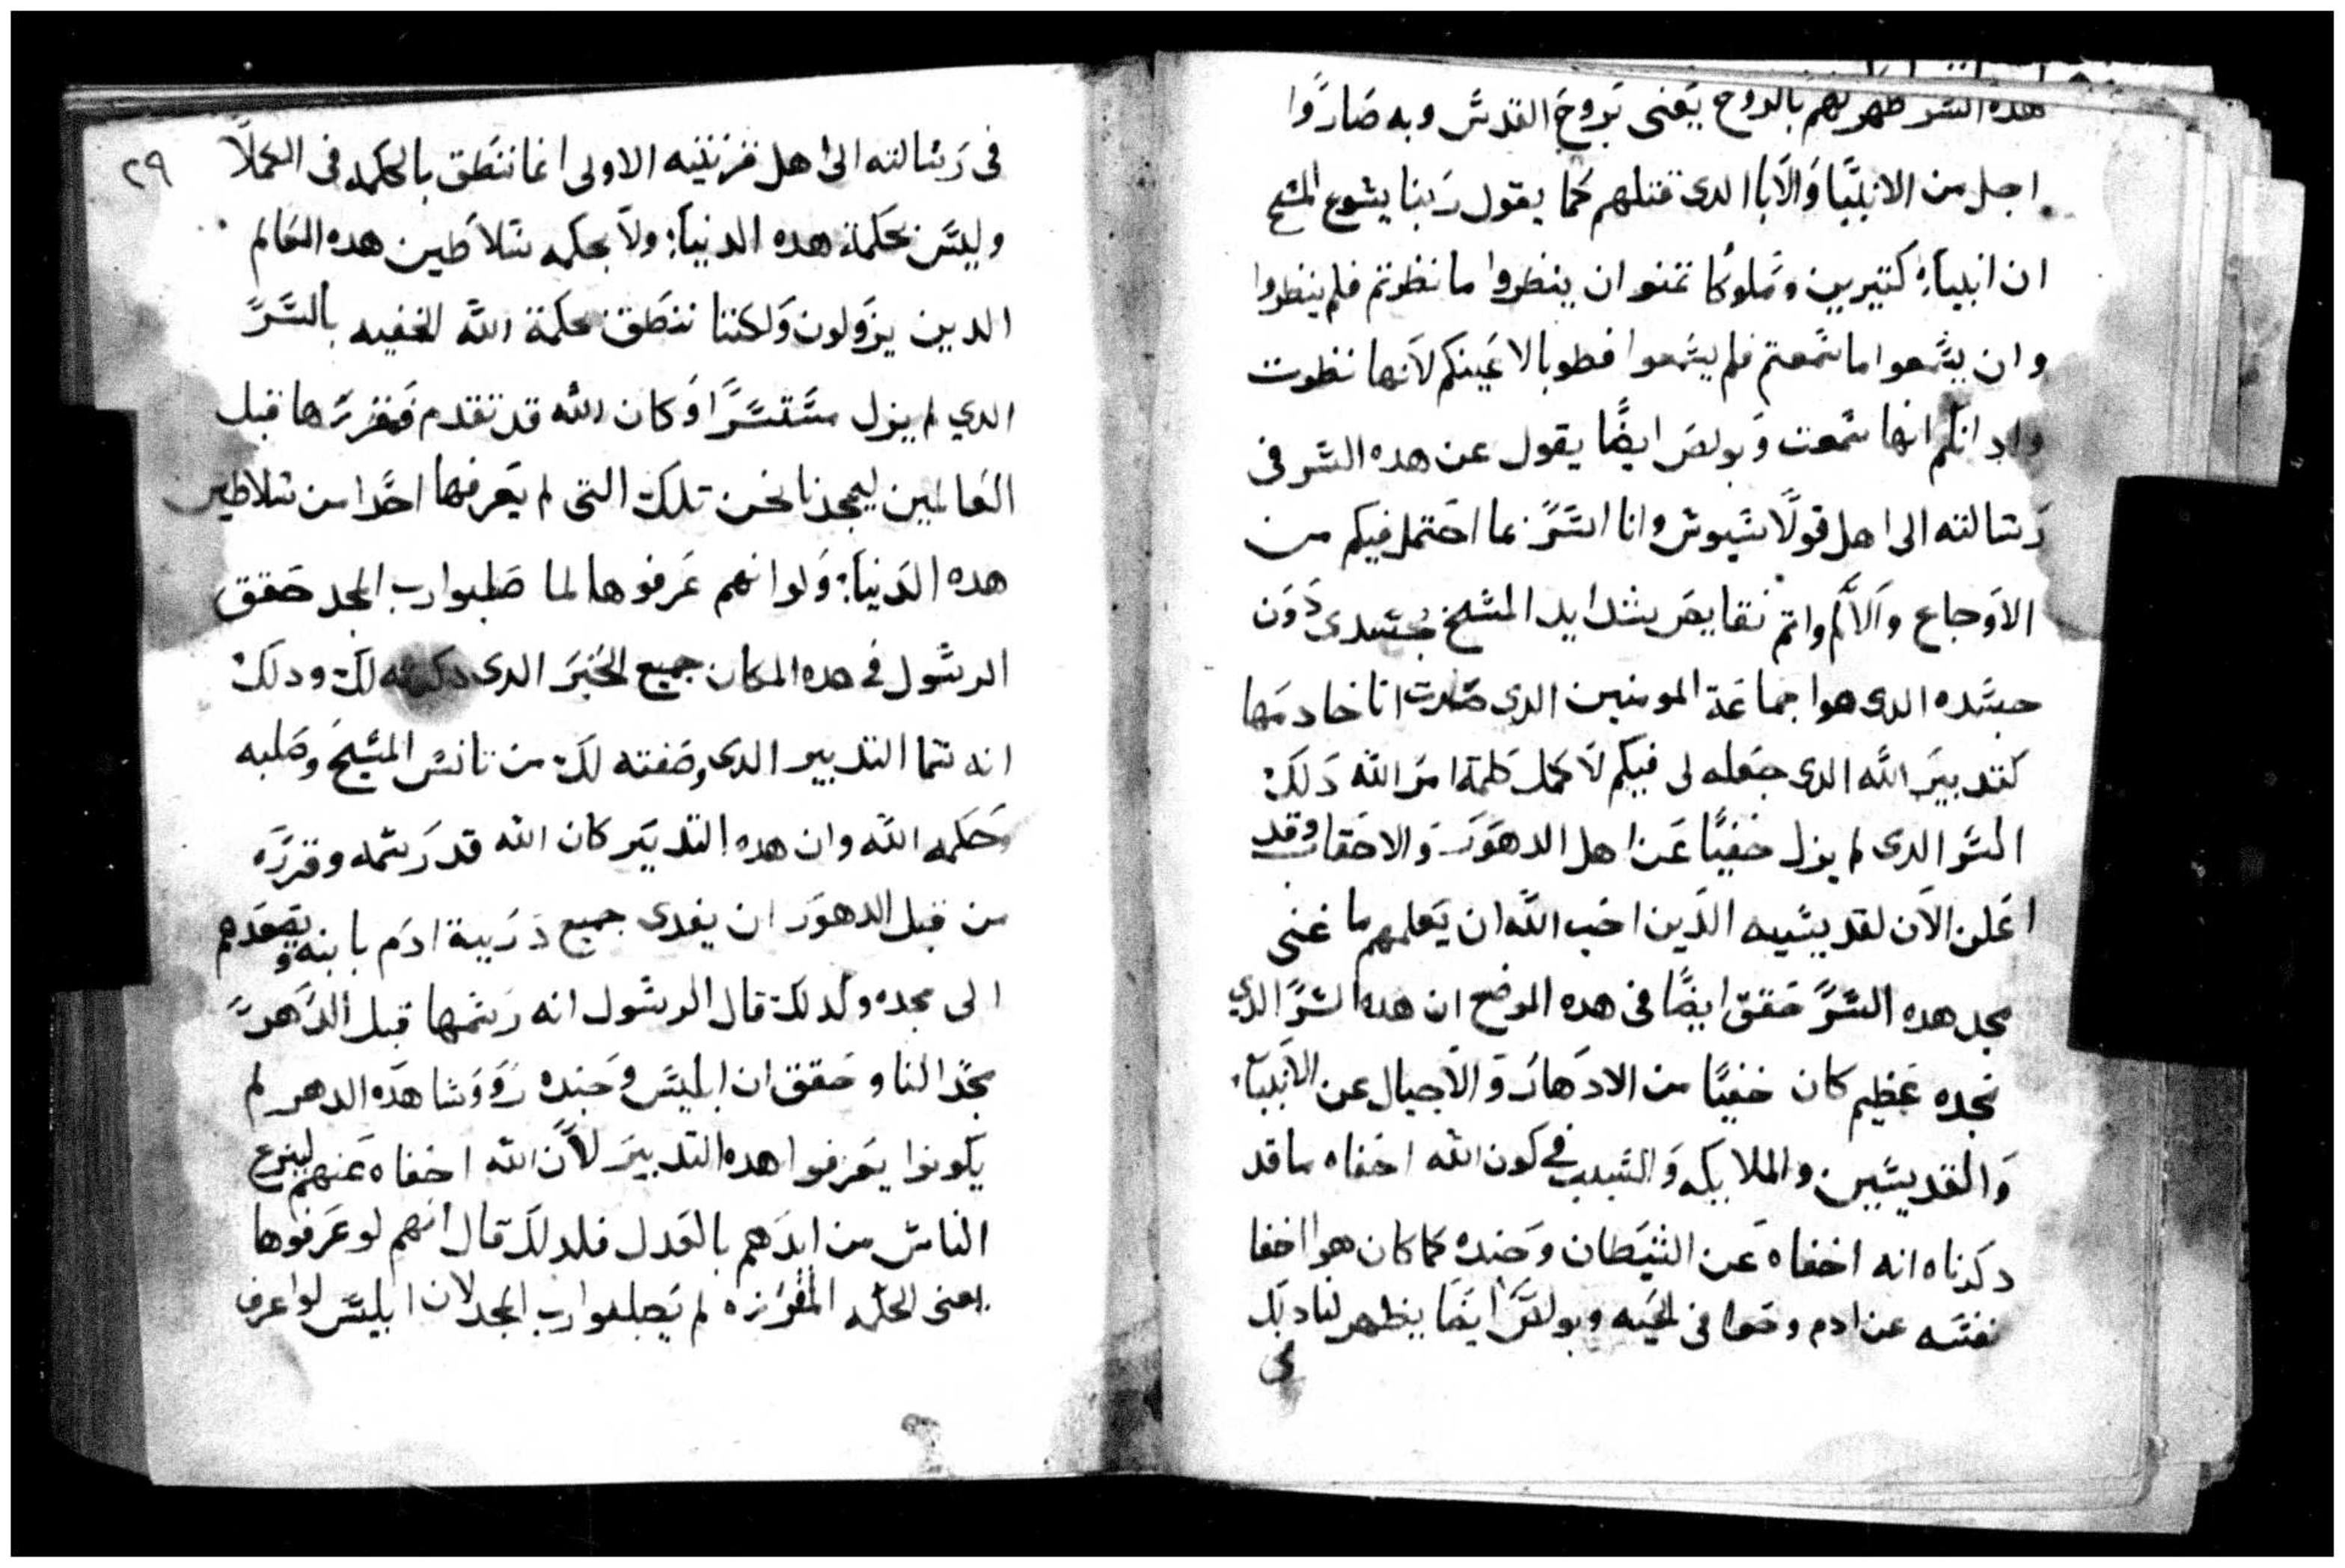 هده السر طهر لهم بالروح يعنى بروح القدس وبه صاروا
اجل من الانبيا والابا الدى قتلهم كما يقول ربنا يسوع المسيح
ان انبياء كتيرين وملوكا تمنو ان ينطروا ما نظرتم فلم ينظروا
وان يسمعوا ما سمعتم فلم يسمعوا فطوبا لاعينكم لانها نظرت
وادانكم انها سمعت وبولص ايضا يقول عن هده السر فى
رسالته الى اهل قولاسيوس وانا اسر بما احتمل فيكم من
الاوجاع والالم واتم نقايص شدايد المسيح بجسدى دون
جسده الدى هوا جماعة المومنين الدى صرت انا خادمها
كتدبير الله الدى جعله لى فيكم لاكمل كلمة امر الله دلك
السر الدى لم يزل خفيا عن اهل الدهور والاحقاب وقد
اعلن الان لقديسيه الدين احب الله ان يعلمهم ما غنى
مجد هده السر حقق ايضا فى هده الموضع ان هده السر الدى
مجده عظيم كان خفيا من الادهار والاجيال عن الانبياء
والقديسين والملايكه والسبب فى كون الله اخفاه ما قد
دكرناه انه اخفاه عن الشيطان وجنده كما كان هوا اخفا
نفسه عن ادم وحوا فى الحيه وبولس ايضا يظهر لنا دلك
فى
٢٩
فى رسالته الى اهل قرنتيه الاولى انما ننطق بالحكمه فى الكملا
وليس بحكمة هده الدنياء ولا بحكمه سلاطين هده العالم
الدين يزولون ولكننا ننطق بحكمة الله الخفيه بالسر
الدي لم يزل مستسرا وكان الله قد تقدم فقررها قبل
العالمين ليمجدنا نحن تلك التى لم يعرفها احدا من سلاطين
هده الدنياء ولوا نهم عرفوها لما صلبوا رب المجد حقق
الرسول فى هده المكان جميع الخبر الدى دكرته لك ودلك
انه سما التدبير الدى وصفته لك من تانس المسيح وصلبه
حكمه الله وان هده التدبير كان الله قد رسمه وقرره
من قبل الدهور ان يفدى جميع دريبة ادم بابنه ويصعدهم
الى مجده ولدلك قال الرسول انه رسمها قبل الدهر
مجدا لنا وحقق ان ابليس وجنده رووسا هده الدهر لم
يكونوا يعرفوا هده التدبير لان الله اخفاه عنهم لينزع
الناس من ايدهم بالعدل فلدلك قال انهم لو عرفوها
يعنى الحكمه المفرزه لم يصلبوا رب المجد لان ابليس لوا عرف